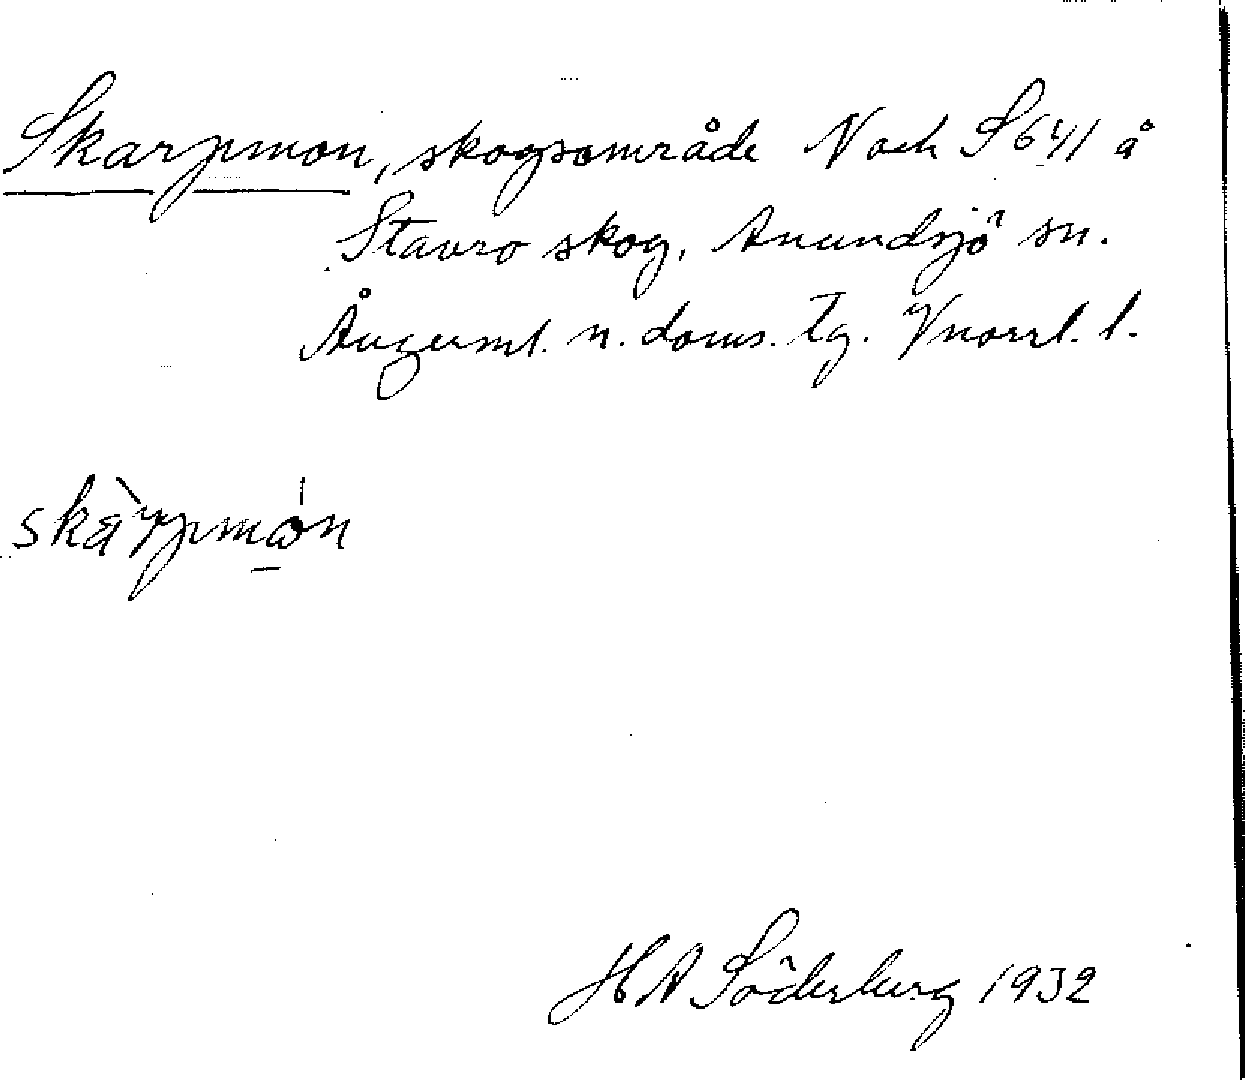 Skarpmon, skogsområde N och S 641 å
Stavro skog, Anundsjö sn.
Ångerml. n. doms. tg. Vnorrl. l.
skàrpmón
H A Söderberg 1932